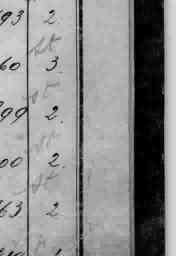 93 2.
st
60 3.
st
99 2.
st
00 2.
st
63 2